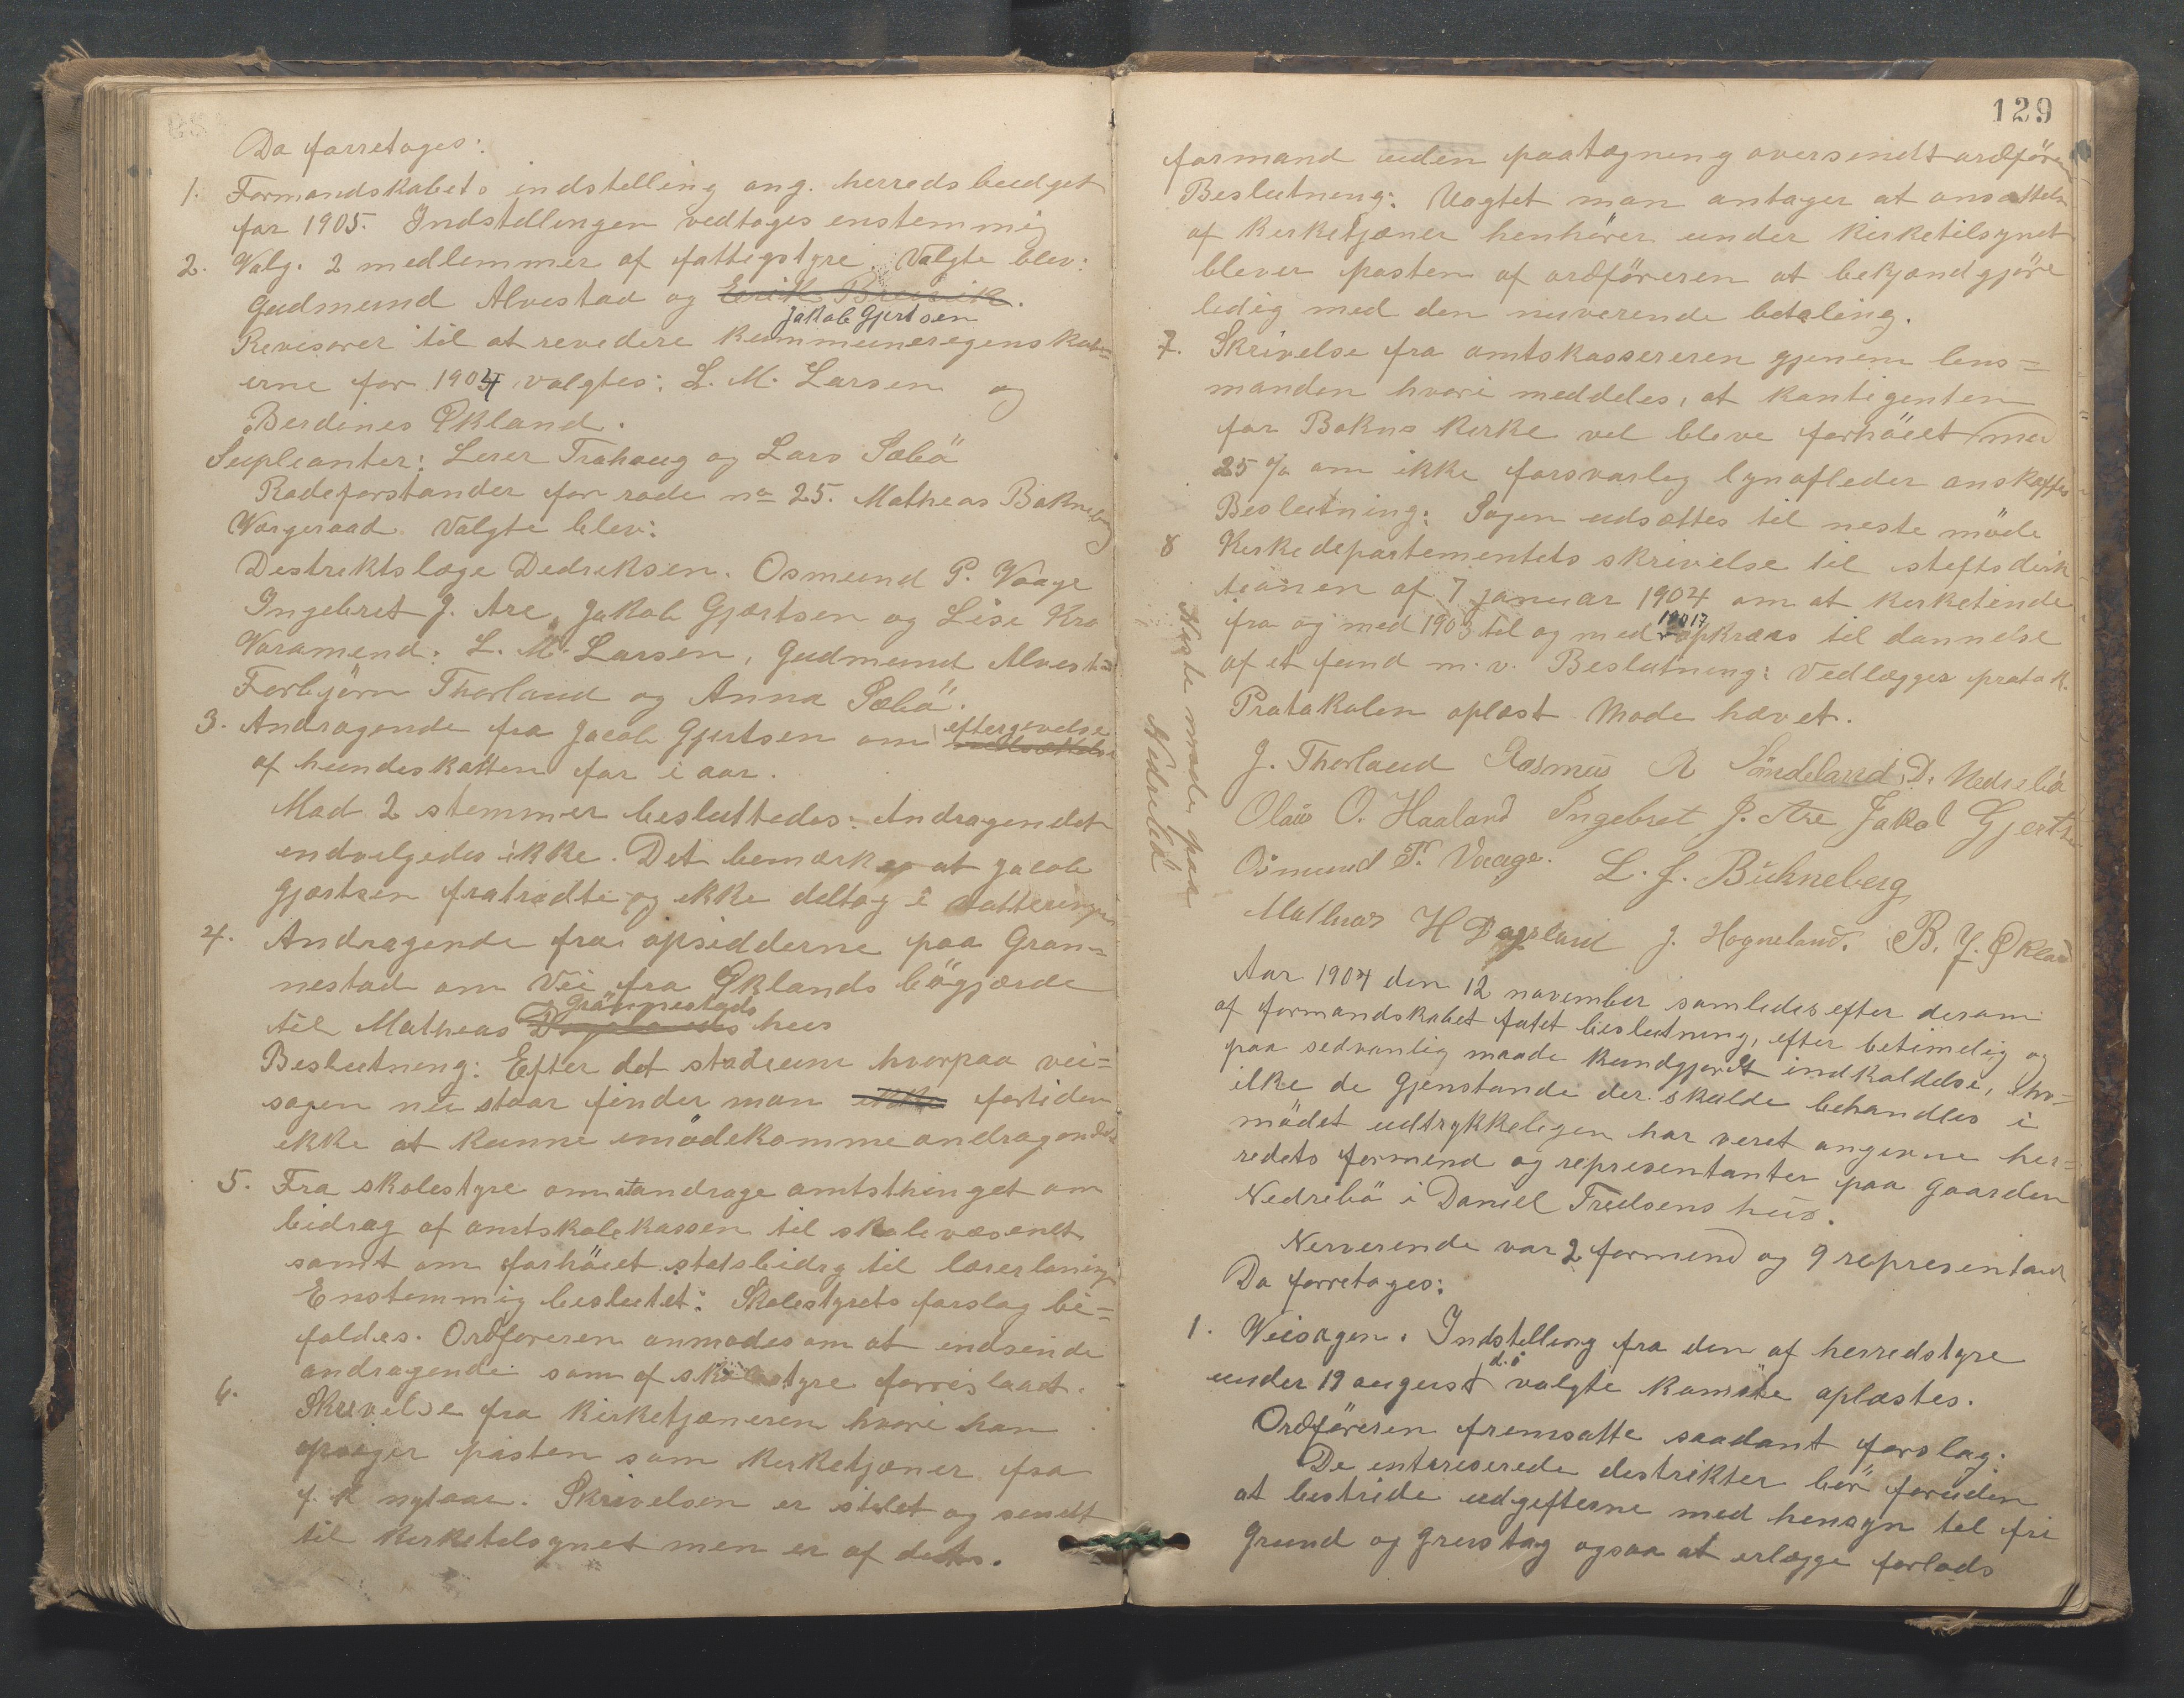 Da forretoges:
1. Formandskabets indstelling ang. herredsbudget
for 1905. Indstellingen vedtoges enstemmig
2. Valg. 2 medlemmer af fattigstyre. Valgte blev:
Gudmund Alvestad og Erik Brevik.
Jakob Gjertsen
Revisorer til at revedere kommuneregenskab=
erne for 1904 valgtes: L. M. Larsen og
Berdines Økland.
Supleanter: Lerer Trahaug og Lars Sæbö
Rodeforstander for rode no 25. Matheas Bokneberg
Værgeraad Valgte blev:
Destriktslæge Dedreksen. Osmund P. Vaage
Ingebret J. Are, Jakob Gjærtsen og Lise Kro
Varamend: L. M. Larsen, Gudmund Alvestad
Torbjörn Thorland og Anna Sæbö.
3. Andragende fra Jacob Gjertsen om eftergivelse
af hundeskatten for i aar.
Mad 2 stemmer besluttedes: Andragendet
endvilgedes ikke. Det bemærkes at Jacob
Gjærtsen fratrådte og ikke deltog i votteringen
4. Andragende fra opsidderne paa Gran=
nestad om Vei fra Øklands bögjærde
Grännestads
til Matheas Dagslands hus
Beslutning: Efter det stadium hvorpaa vei=
sagen nu staar finder man ikke fortiden
ikke at kunne imödekomme andragendet
5. Fra skolestyre om at andrage amtsthinget om
bidrag af amtskolekassen til skolevæsenet
samt om forhöiet statsbidrg til lærerlöninger
Enstemmig besluttet: Skolestyrets forslag bi=
faldes. Ordföreren anmodes om at indsende
andragende som af skolestyre foreislaaet.
6. Skrivelse fra kirketjæneren hvori han
opsiger posten som kerketjæner fra
f. k. nytaar. Skrivelsen er stilet og sendt
til kerketelsynet men er af dets.
129
formand uden paategning oversendt ordföreren
Beslutning: Uagtet man antager at ansættelse
af Kerketjæner henhörer under kirketilsynet
blever posten af ordföreren at bekjændgjöre
ledig med den nuverende betaling.
7. Skrivelse fra amtskassereren gjenem lens=
manden hvori meddeles, at kontigenten
for Bokns kerke vel bleve forhöiet med
25 % om ikke forsvarleg lynafleder anskaffes
Beslutning: Sagen udsættes til neste möde
8 Kerkedepartementets skrivelse til steftsderk
tionen af 7 januar 1904 om at kerketiende
1917
fra og med 1903 til og med opkræves til dannelse
af et fond m. v. Beslutning: Vedlægges protok.
Protokolen oplæst Mode hævet.
J. Thorland Rasmus R Söndeland D. Nedrebö
Olaus O. Haaland Ingebret J. Are Jakob Gjertsen
Osmund P. Vaage. L. J. Bükneberg
Matheas H Dagsland J. Hogneland. B. J. Økland
Neste möde paa
Nedrebö
Aar 1904 den 12 november samledes efter derom
af formandskabet fatet beslutning, efter betimelig og
paa sedvanlig maade kundgjordt indkaldelse, i hv=
ilke de Gjenstande der skulde behandles i
mödet udtrykkeligen har veret angivne her=
redets formend og representanter paa Gaarden
Nedrebö i Daniel Troelsens hus.
Nerverende var 2 formend og 9 representant
Da forretoges:
1. Veisagen. Indstelling fra den af herredstyre
under 19 august d. å valgte komite oplæstes.
Ordföreren fremsatte saadant forslag:
De intereserede destrikter bör foruden
at bestride udgifterne med hensyn tel fri
grund og grustag ogsaa at erlægge forlods